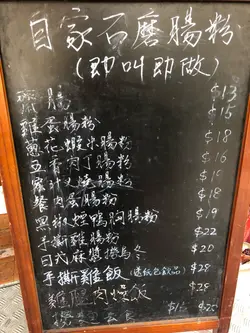 自家石磨腸粉
(即叫即做)
齋腸 $13
雞蛋腸粉 $15
蔥花蝦米腸粉 $18
五香肉丁腸粉 $16
腸粉 $19
餐肉蛋腸粉 $18
黑椒煙鴨胸腸粉 $22
手撕雞腸粉 $20
日式麻醬撈烏冬 $28
手撕雞飯(送紙包飲品) $28
飯
$25